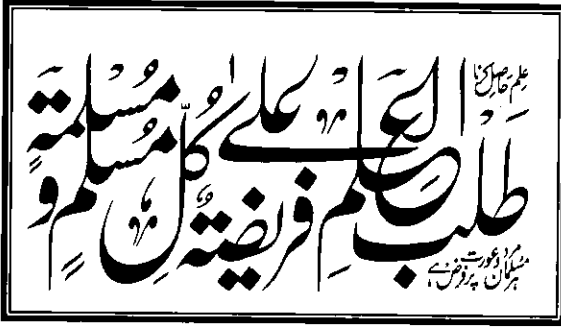 علم حاصل کرنا
طلب العلم فریضتہ علیٰ کل مسلم و مسلمۃ
ہر مسلمان مرد و عورت پر فرض ہے